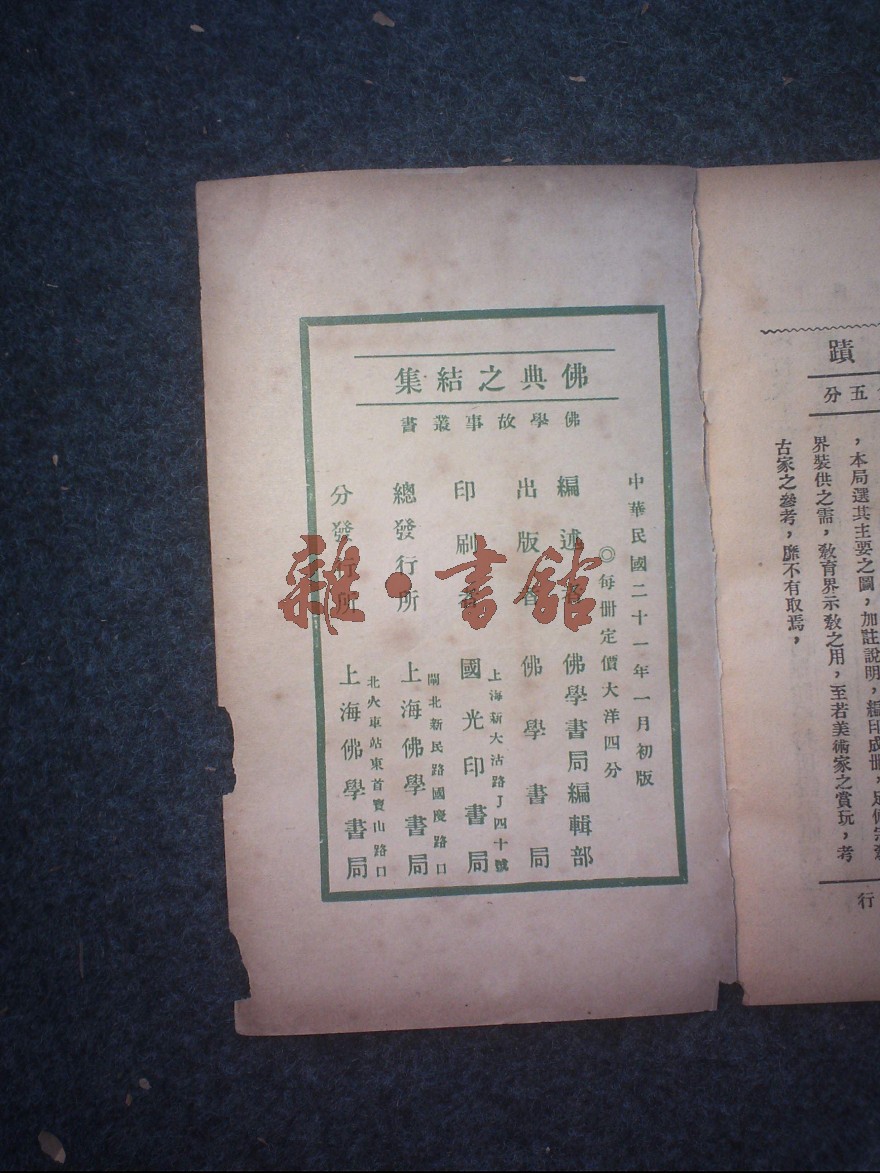 佛典之結集
佛學故事叢書
中華民國二十一年一月初版
◎每冊定價大洋四分
編述者 佛學書局編輯部
出版者 佛學書局
上海新大沽路J四十號
印刷者 國光印書局
閘北新民路國慶路口
總發行所 上海佛學書局
北火車站東首寶山路口
分發行所 上海佛學書局
雜·書館
蹟
五分
，本局選其主要之圖，加註說明，編印成冊，足備宗教
界裝供之需，教育界示教之用，至若美術家之賞玩，考
古家之參考，靡不有取焉，
行